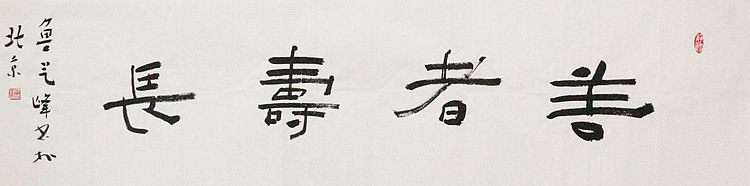 善者壽長
魯峰书於
北京